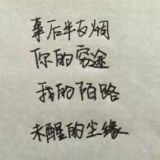 事后半支烟
你的穷途
我的陌路
未醒的尘缘